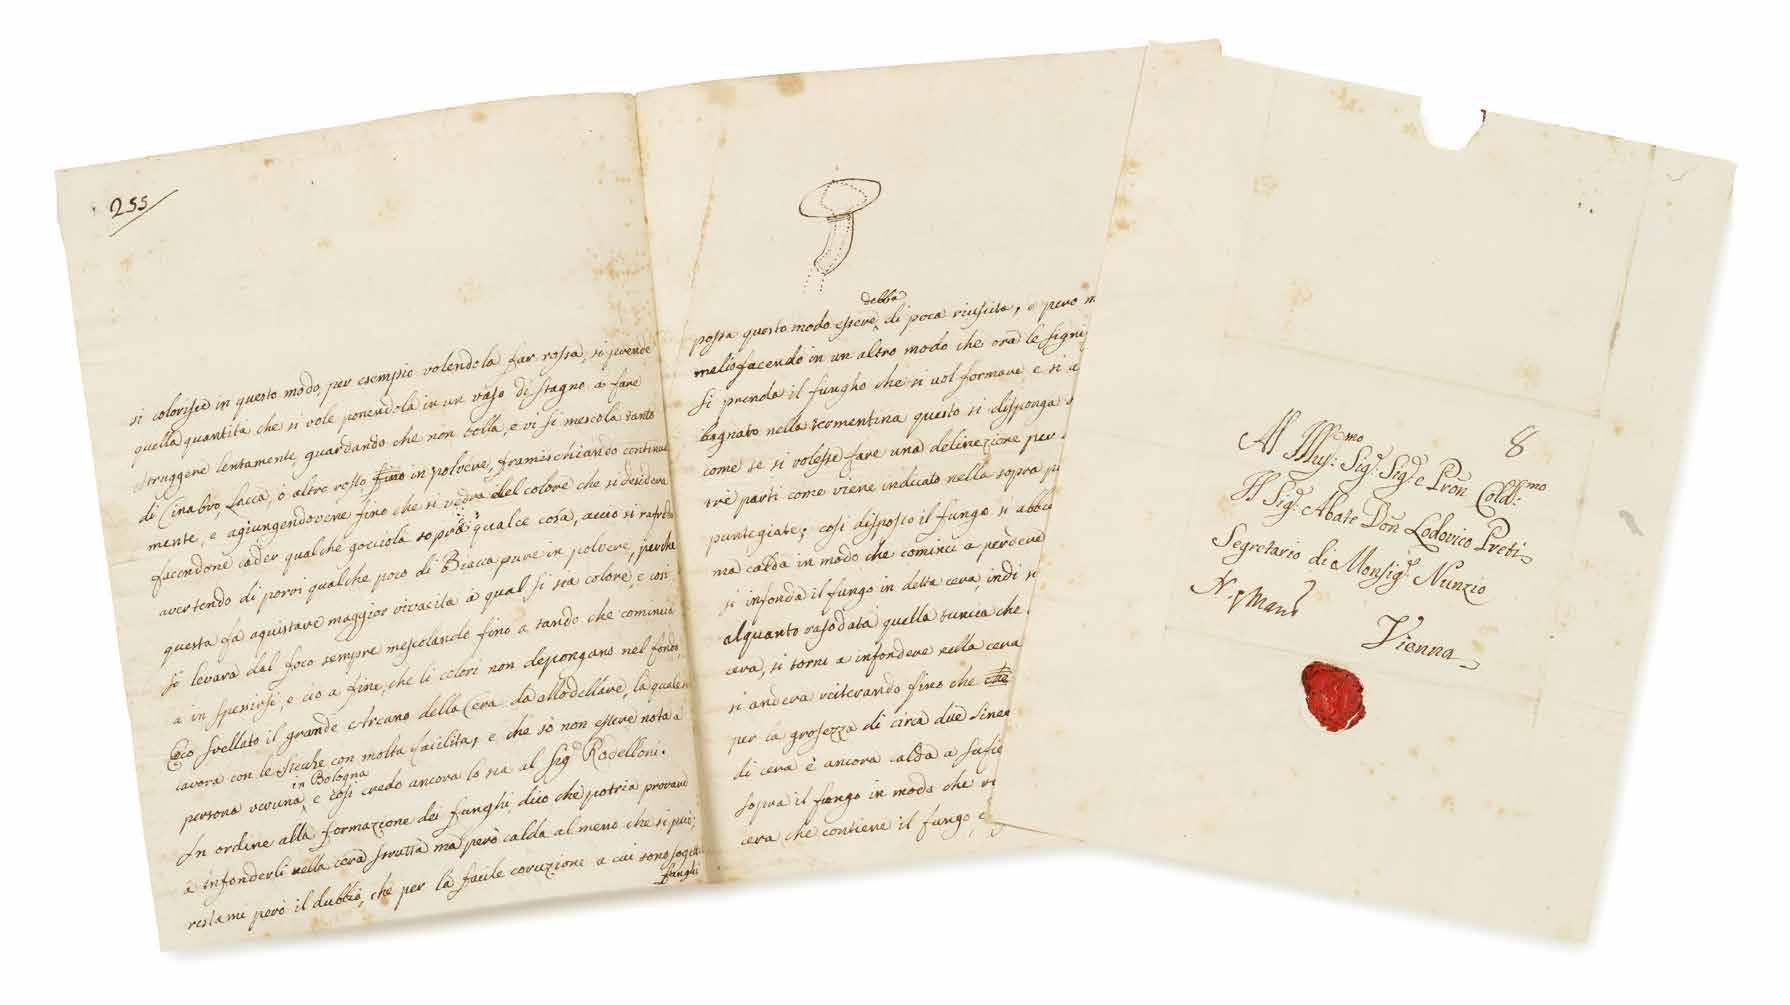 255
si colorisce in questo modo, per esempio volendola far rossa, si prende
quella quantita che si vole ponendola in un vaso di stagno a fare
struggere lentamente, guardando che non bolla, e vi si mescola tanto
di Cinabro, Lacca, ò altro rosso fino in polvere, framischiando continua
mente, e agiungendovene fino che si vedra del colore che si desidera
facendone cader qualche gocciola sopra qualce cosa, accio si rafredi
avertendo di porvi qualche poco di Biacca pure in polvere, perche
questa fa aquistare maggior vivacita à qual si sia colore, e cosi
si levara dal foco sempre mescolando fino a tando che comincia
a in spessirsi, e cio a fine, che li colori non depongano nel fondo,
Eco svellato il grande Arcano della Cera da Modellare, la quale si
lavora con le stecche con molta facilita, e che sò non essere nota a
in Bologna
persona veruna, e cosi credo ancora lo sia al Sigr Radelloni.
In ordine alla formazione dei funghi, dico che potria provare
a infonderli nella cera strutta ma però calda al meno che si può,
restami però il dubbio, che per la facile coruzione a cui sono sogetti
funghi
debba
possa questo modo essere di poca riuscita, e pero m
melio facendo in un altro modo che ora le signi
Si prenda il fungho che si vol formare e si
bagnato nella trementina questo si disponga
come se si volesse fare una delineazione per
trè parti come viene indicato nella sopra
puntegiate; cosi disposto il fungo si abbia
ma calda in modo che cominci a perdere
si infonda il fungo in detta cera, indi si
alquanto rasodata quella tunica che
cera, si torni a infondere nella cera
si andera reiterando fino che
per la grosezza di circa due linee
di cera è ancora calda a sufic
sopra il fungo in modo che
cera che contiene il fungo,
8
Al Illmo: Sigr: Sigr e Pron Coldmo
Il Sigr Abate Don Lodovico Preti
Segretario di Monsigr Nunzio
Vienna